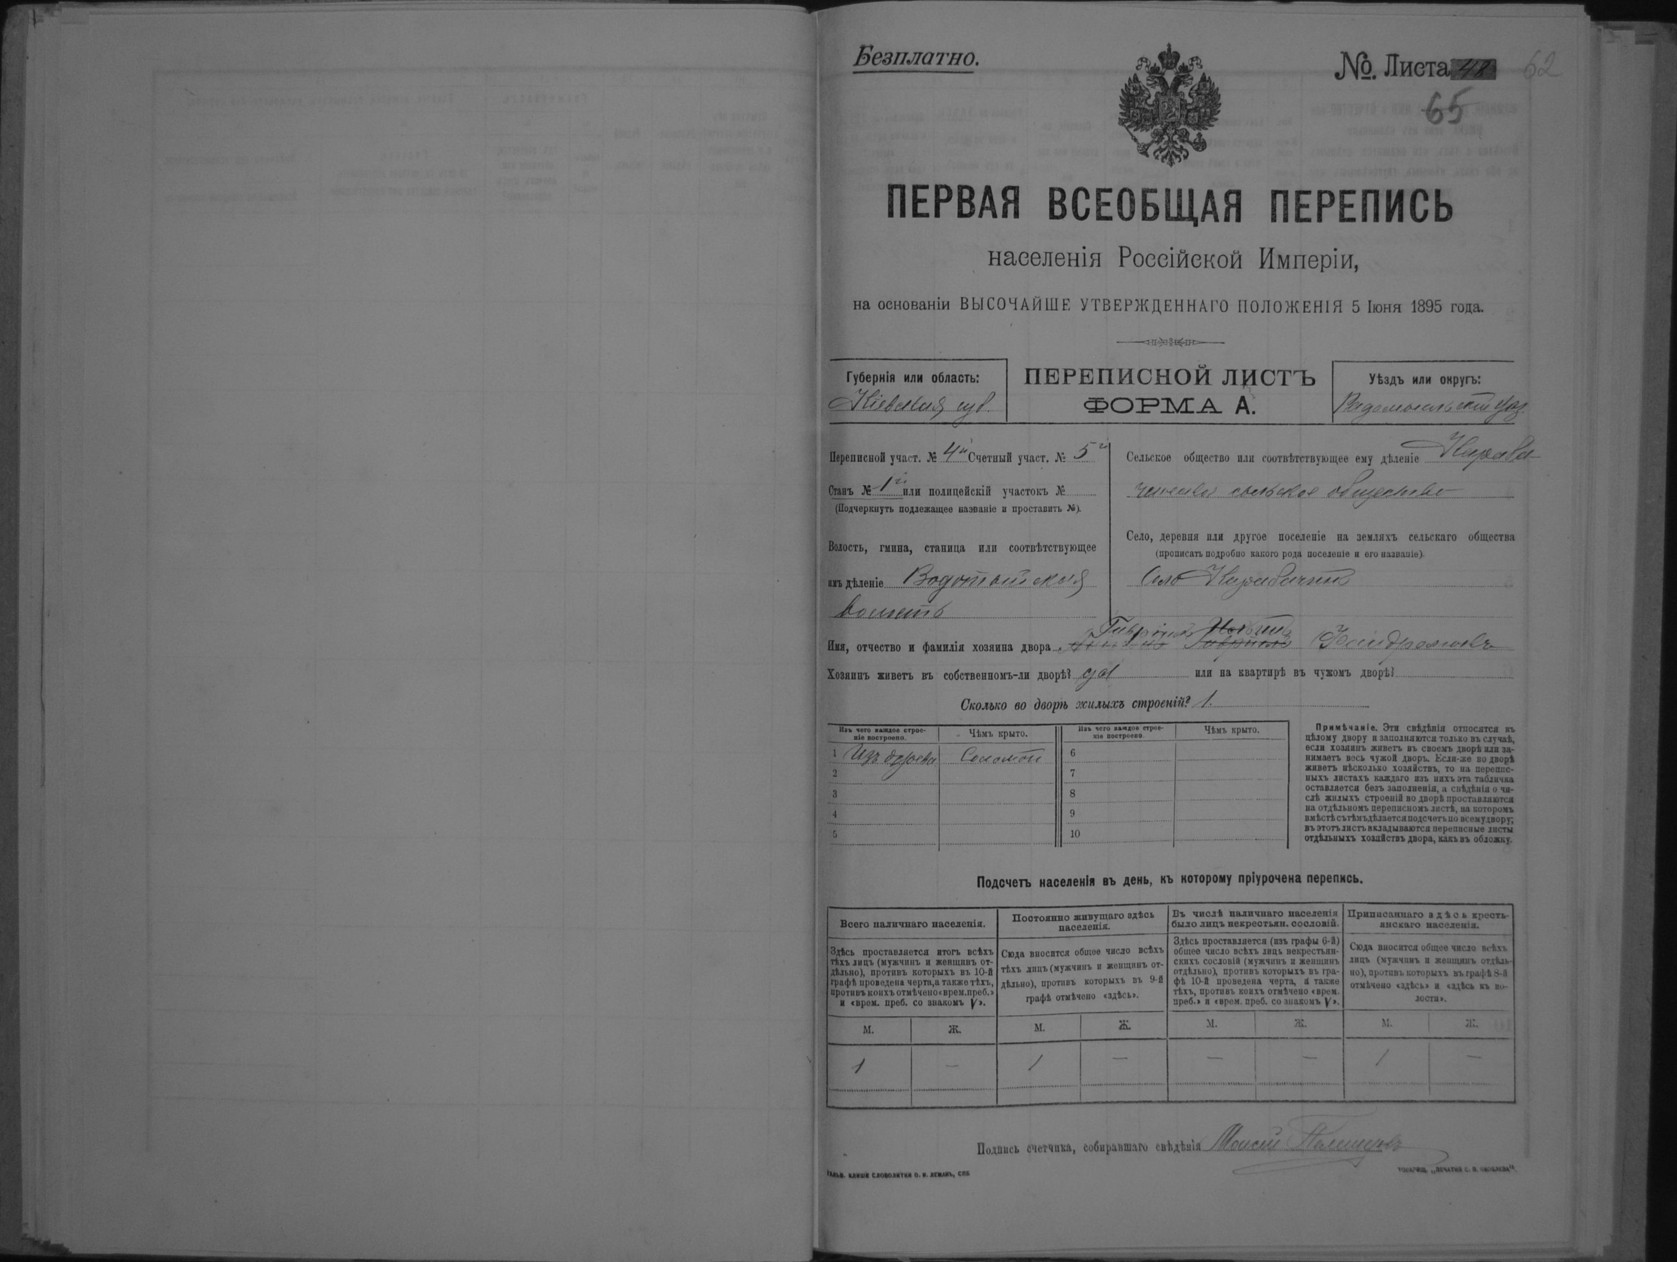 Безплатно.
№. Листа 48 62
65
ПЕРВАЯ ВСЕОБЩАЯ ПЕРЕПИСЬ
населенія Россійской Имперіи,
на основаніи ВЫСОЧАЙШЕ УТВЕРЖДЕННАГО ПОЛОЖЕНІЯ 5 Іюня 1895 года.
Губернія или область:
Кіевская губ.
ПЕРЕПИСНОЙ ЛИСТЪ
ФОРМА А.
Уѣздъ или округъ:
Радомысльскій уѣз.
Переписной участ. № 4й Счетный участ. № 5й
Станъ № 1й или полицейскій участокъ №
(Подчеркнуть подлежащее названіе и проставить №).
Волость, гмина, станица или соотвѣтствующее
имъ дѣленіе Водотыйская
волость
Сельское общество или соотвѣтствующее ему дѣленіе
сельское общество
Село, деревня или другое поселеніе на земляхъ сельскаго общества
(прописать подробно какого рода поселеніе и его названіе).
Село
Имя, отчество и фамилія хозяина двора
Хозяинъ живетъ въ собственномъ-ли дворѣ? или на квартирѣ въ чужомъ дворѣ?
Сколько во дворѣ жилыхъ строеній? 1.
Изъ чего каждое строе-
ніе построено.
Чѣмъ крыто.
Изъ чего каждое строе-
ніе построено.
Чѣмъ крыто.
1 Изъ дерева Соломой 6
2 7
3 8
4 9
5 10
Примѣчаніе. Эти свѣдѣнія относятся къ
цѣлому двору и заполняются только въ случаѣ,
если хозяинъ живетъ въ своемъ дворѣ или за-
нимаетъ весь чужой дворъ. Если-же во дворѣ
живетъ нѣсколько хозяйствъ, то на перепис-
ныхъ листахъ каждаго изъ нихъ эта табличка
оставляется безъ заполненія, а свѣдѣнія о чи-
слѣ жилыхъ строеній во дворѣ проставляются
на отдѣльномъ переписномъ листѣ, на которомъ
вмѣстѣ съ тѣмъ дѣлается подсчетъ по всему двору;
въ этотъ листъ вкладываются переписные листы
отдѣльныхъ хозяйствъ двора, какъ въ обложку.
Подсчетъ населенія въ день, къ которому пріурочена перепись.
Всего наличнаго населенія.
Здѣсь проставляется итогъ всѣхъ
тѣхъ лицъ (мужчинъ и женщинъ от-
дѣльно), противъ которыхъ въ 10-й
графѣ проведена черта, а также тѣхъ,
противъ коихъ отмѣчено «врем. преб.»
и «врем. преб. со знакомъ V».
Постоянно живущаго здѣсь
населенія.
Сюда вносится общее число всѣхъ
тѣхъ лицъ (мужчинъ и женщинъ от-
дѣльно), противъ которыхъ въ 9-й
графѣ отмѣчено «здѣсь».
Въ числѣ наличнаго населенія
было лицъ некрестьян. сословій.
Здѣсь проставляется (изъ графы 6-й)
общее число всѣхъ лицъ некрестьян-
скихъ сословій (мужчинъ и женщинъ
отдѣльно), противъ которыхъ въ гра-
фѣ 10-й проведена черта, а также
тѣхъ, противъ коихъ отмѣчено «врем.
преб.» и «врем. преб. со знакомъ V».
Приписаннаго здѣсь кресть-
янскаго населенія.
Сюда вносится общее число всѣхъ
лицъ (мужчинъ и женщинъ отдѣль-
но), противъ которыхъ въ графѣ 8-й
отмѣчено «здѣсь» и «здѣсь къ во-
лости».
М. Ж. М. Ж. М. Ж. М. Ж.
1 — 1 — — — 1 —
Подпись счетчика, собиравшаго свѣдѣнія Моисей